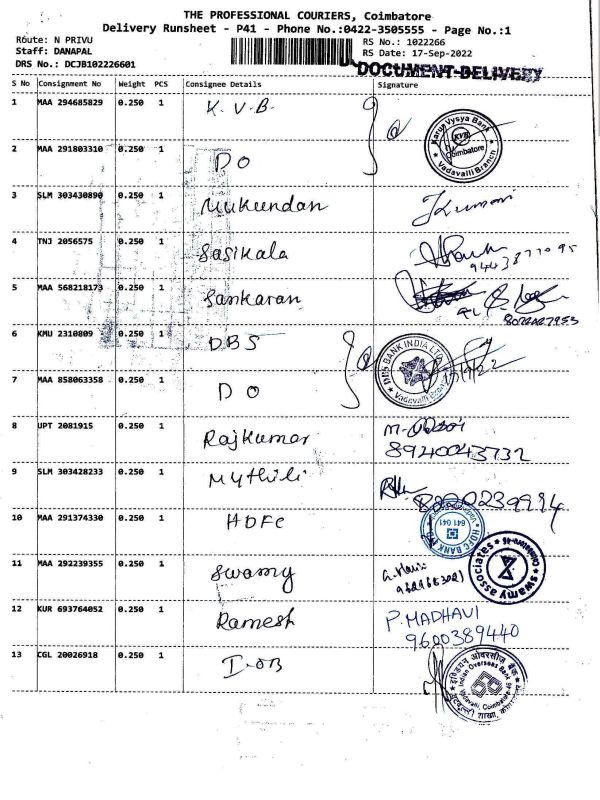 THE PROFESSIONAL COURIERS, Coimbatore
Delivery Runsheet - P41 - Phone No.:0422-3505555 - Page No.:1
Route: N PRIVU
RS No.: 1022266
Staff: DANAPAL
RS Date: 17-Sep-2022
DRS No.: DCJB102226601
DOCUMENT-DELIVERY
S No Consignment No Weight PCS Consignee Details Signature
1 MAA 294685829 0.250 1 K.V.B.
Karur Vysya Bank KVB Coimbatore Vadavalli Branch
2 MAA 291803310 0.250 1 DO
3 SLM 303430890 0.250 1 Mukundan
4 TNJ 2056575 0.250 1 Sasikala
5 MAA 568218173 0.250 1 Sankaran
6 KMU 2310809 0.250 1 DBS
DBS BANK INDIA LTD Vadavalli
7 MAA 858063358 0.250 1 DO
8 UPT 2081915 0.250 1 Rajkumar
8940043732
9 SLM 303428233 0.250 1 Mythili
10 MAA 291374330 0.250 1 HDFC
HDFC BANK 641 041
11 MAA 292239355 0.250 1 Swamy
swamy associates
12 KUR 693764052 0.250 1 Ramesh P.MADHAVI
9600389440
13 CGL 20026918 0.250 1 I-OB
इण्डियन ओवरसीज़ बैंक
Indian Overseas Bank
Vadavalli, Coimbatore